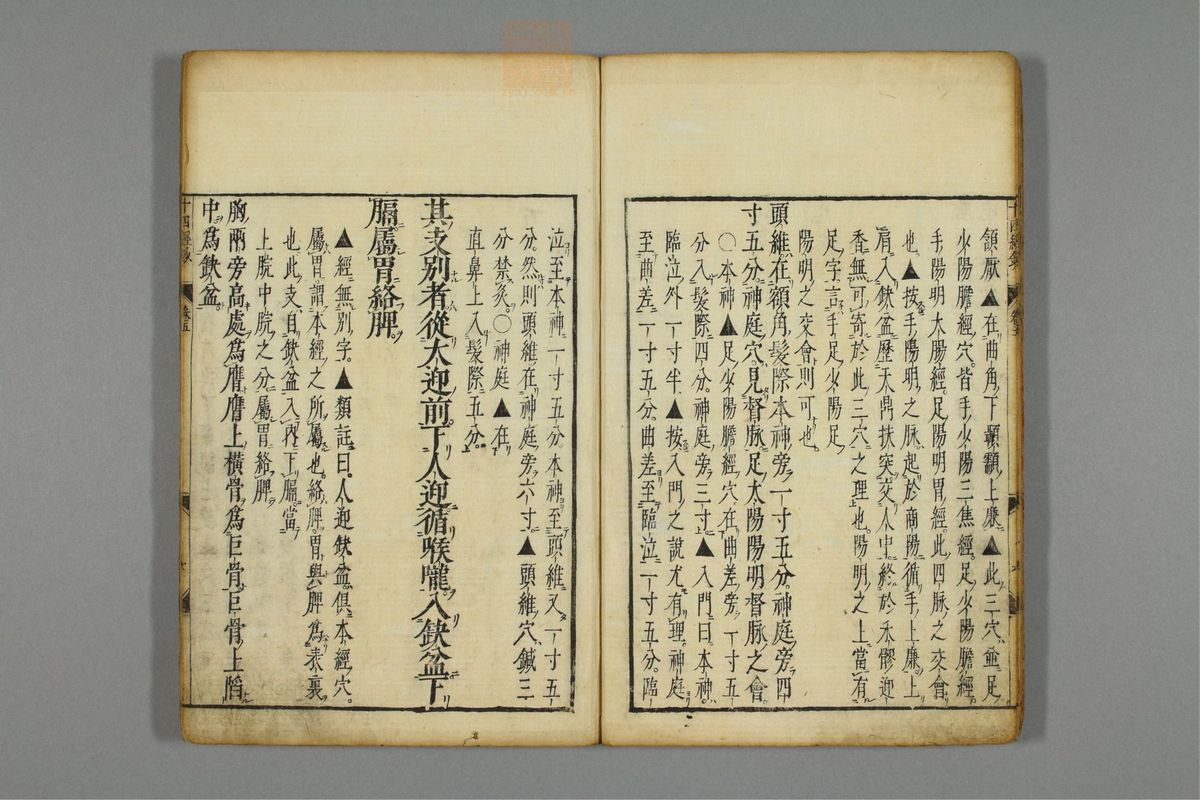 頷厭▲在曲角下顳顬上廉▲此三穴並足
少陽膽經穴皆手少陽三焦經足少陽膽經
手陽明大腸經足陽明胃經此四脉之交會
也▲按手陽明之脉起於商陽循手上廉上
肩入鈌盆歷天鼎扶突交人中終於禾髎迎
香無可寄於此三穴之理也陽明之上當有
足字言手足少陽足
陽明之交會則可也
頭維在額角髮際本神旁一寸五分神庭旁四
寸五分神庭穴見督脉足太陽陽明督脉之會
〇本神▲足少陽膽經穴在曲差旁一寸五
分入髮際四分神庭旁三寸▲入門曰本神
臨泣外一寸半▲按入門之說尤有理神庭
至曲差一寸五分曲差至臨泣一寸五分臨
泣至本神一寸五分本神至頭維又一寸五
分然則頭維在神庭旁六寸▲頭維穴鍼三
分禁灸〇神庭▲在
直鼻上入髮際五分
其支別者從大迎前下人迎循喉嚨入鈌盆下
膈屬胃絡脾
▲經無別字▲類註曰人迎鈌盆俱本經穴
屬胃謂本經之所屬也絡脾胃與脾為表裏
也此支自鈌盆入內下膈當
上脘中脘之分屬胃絡脾
胸兩旁高處為膺膺上橫骨為巨骨巨骨上䧟
中為鈌盆